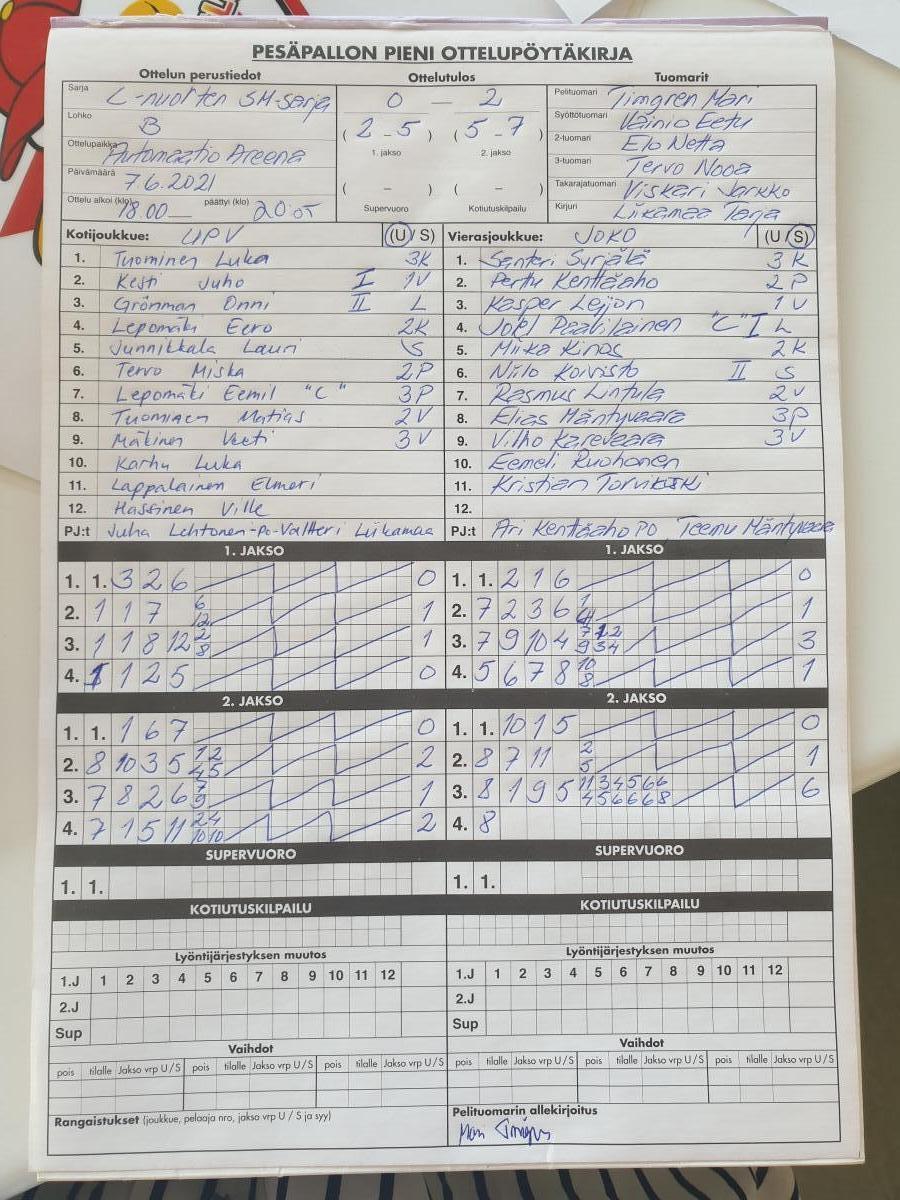 PESÄPALLON PIENI OTTELUPÖYTÄKIRJA
Ottelun perustiedot Ottelutulos Tuomarit
Sarja C-nuorten SM-sarja 0 – 2 Pelituomari Timgren Mari
Lohko B (2-5) (5-7) Syöttötuomari Vainio Eetu
1. jakso 2. jakso 2-tuomari Elo Netta
Ottelupaikka Automaatio Areena 3-tuomari Tervo Nooa
Päivämäärä 7.6.2021 ( – ) ( – ) Takarajatuomari Viskari Jarkko
Ottelu alkoi (klo) 18.00 päättyi (klo) 20.05 Supervuoro Kotiutuskilpailu Kirjuri Liikamaa Tarja
Kotijoukkue: UPV (U / S) Vierasjoukkue: JOKO (U / S)
1. Tuominen Luka 3K 1. Santeri Syrjälä 3K
2. Kesti Juho I 1V 2. Perttu Kenttäaho 2P
3. Grönman Onni II L 3. Kasper Leijon 1V
4. Lepomäki Eero 2K 4. Joel Paavilainen "C" I L
5. Junnikkala Lauri S 5. Miika Kinos 2K
6. Tervo Miska 2P 6. Niilo Koivisto II S
7. Lepomäki Eemil "C" 3P 7. Rasmus Lintula 2V
8. Tuominen Matias 2V 8. Elias Mäntyvaara 3P
9. Mäkinen Veeti 3V 9. Vilho Karevaara 3V
10. Karhu Luka 10. Eemeli Ruohonen
11. Lappalainen Elmeri 11. Kristian Torvikoski
12. Hassinen Ville 12.
PJ:t Juha Lehtonen -Po- Valtteri Liikamaa PJ:t Ari Kenttäaho PO Teemu Mäntyvaara
1. JAKSO 1. JAKSO
1. 1. 3 2 6 0 1. 1. 2 1 6 0
2. 1 1 7 6 12 1 2. 7 2 3 6 1
3. 1 1 8 12 2 8 1 3. 7 9 10 4 3
4. 1 1 2 5 0 4. 5 6 7 8 10 8 1
2. JAKSO 2. JAKSO
1. 1. 1 6 7 0 1. 1. 10 1 5 0
2. 8 10 3 5 1 2 4 5 2 2. 8 7 11 2 5 1
3. 7 8 2 6 7 9 1 3. 8 1 9 5 11 3 4 5 6 6 4 5 6 6 6 8 6
4. 7 1 5 11 2 4 10 10 2 4. 8
SUPERVUORO SUPERVUORO
1. 1. 1. 1.
KOTIUTUSKILPAILU KOTIUTUSKILPAILU
Lyöntijärjestyksen muutos Lyöntijärjestyksen muutos
1.J 1 2 3 4 5 6 7 8 9 10 11 12 1.J 1 2 3 4 5 6 7 8 9 10 11 12
2.J 2.J
Sup Sup
Vaihdot Vaihdot
pois tilalle Jakso vrp U / S pois tilalle Jakso vrp U / S pois tilalle Jakso vrp U / S pois tilalle Jakso vrp U / S pois tilalle Jakso vrp U / S pois tilalle Jakso vrp U / S
Rangaistukset (joukkue, pelaaja nro, jakso vrp U / S ja syy) Pelituomarin allekirjoitus